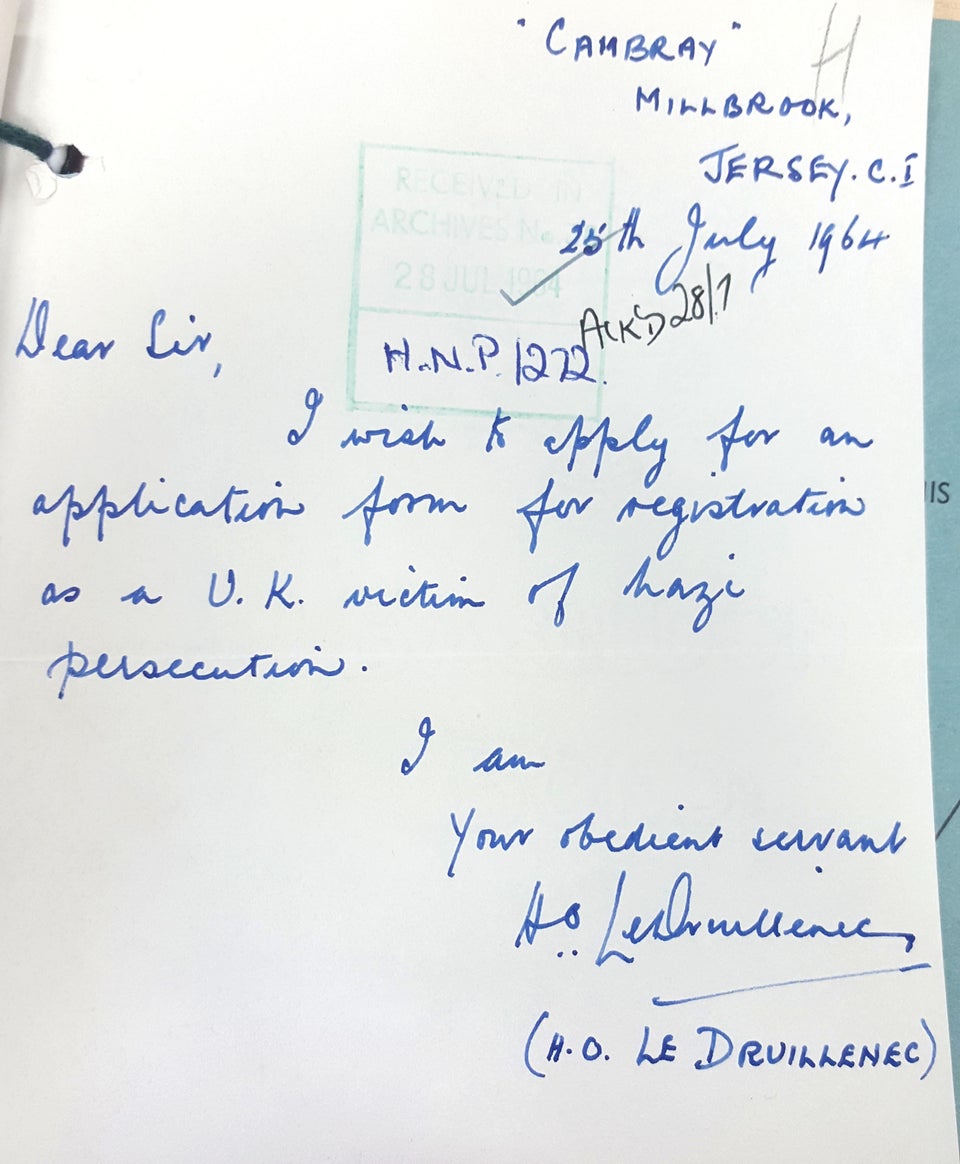 "CAMBRAY" H
MILLBROOK,
JERSEY. C.I
25th July 1964
RECEIVED IN
ARCHIVES No.
28 JUL 1964
ACK'D 28/7
H.N.P. 1272.
Dear Sir,
I wish to apply for an
application form for registration
as a U.K. victim of nazi
persecution.
I am
Your obedient servant
H.O. LeDruillenec
(H.O. LE DRUILLENEC)
IS